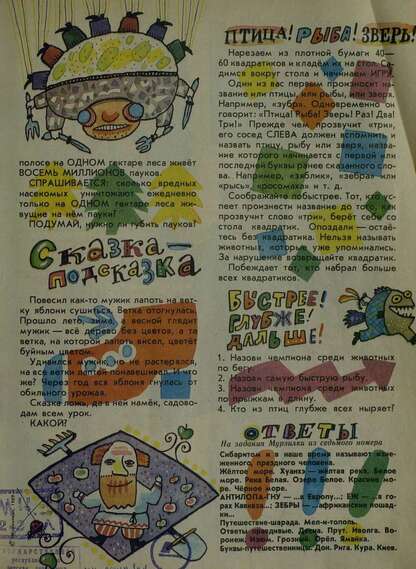 полосе на ОДНОМ гектаре леса живёт
ВОСЕМЬ МИЛЛИОНОВ пауков.
СПРАШИВАЕТСЯ: сколько вредных
насекомых уничтожают ежедневно
только на ОДНОМ гектаре леса жи-
вущие на нём пауки?
ПОДУМАЙ, нужно ли губить пауков?
Сказка-
подсказка
Повесил как-то мужик лапоть на вет-
ку яблони сушиться. Ветка отогнулась.
Прошло лето, зима, а весной глядит
мужик — всё дерево без цветов, а та
ветка, на которой лапоть висел, цветёт
буйным цветом.
Удивился мужик, но не растерялся,
на все ветки лаптей понавешивал. И что
же? Через год вся яблоня гнулась от
обильного урожая.
Сказка ложь, да в ней намёк, садово-
дам всем урок.
КАКОЙ?
ПТИЦА! РЫБА! ЗВЕРЬ!
Нарезаем из плотной бумаги 40—
60 квадратиков и кладём на стол. Са-
димся вокруг стола и начинаем ИГРУ.
Один из играющих произносит на-
звание или птицы, или рыбы, или зверя.
Например, «зубр». Одновременно он
говорит: «Птица! Рыба! Зверь! Раз! Два!
Три!» Прежде чем прозвучит «три»,
его сосед СЛЕВА должен вспомнить и
назвать птицу, рыбу или зверя, назва-
ние которого начинается с первой или
последней буквы ранее сказанного сло-
ва. Например, «зяблик», «зебра»,
«рысь», «росомаха» и т. д.
Соображайте быстрее. Тот, кто успе-
ет произнести название до того, как
прозвучит слово «три», берёт себе со
стола квадратик. Опоздали — остаё-
тесь без квадратика. Нельзя называть
животных, которые уже упоминались.
За нарушение возвращайте квадратик.
Побеждает тот, кто набрал больше
всех квадратиков.
БЫСТРЕЕ!
ГЛУБЖЕ!
ДАЛЬШЕ!
1. Назови чемпиона среди животных
по бегу.
2. Назови самую быструю рыбу.
3. Назови чемпиона среди животных
по прыжкам в длину.
4. Кто из птиц глубже всех ныряет?
ОТВЕТЫ
На задания Мурзилки из седьмого номера
Сибаритом в наше время называют изне-
женного, праздного человека.
Жёлтое море. Хуанхэ — жёлтая река. Белое
море. Река Белая. Озеро Белое. Красное мо-
ре. Чёрное море.
АНТИЛОПА-ГНУ — в Европу...; ЕЖ — в го-
рах Кавказ...; ЗЕБРЫ — африканские лошад-
ки...
Путешествие-шарада. Мел-и-тополь.
Ответы неводные. Десна. Прут. Иволга. Во-
ронеж. Изюм. Грозный. Орёл. Ямайка.
Буквы-путешественницы. Дон. Рига. Кура. Киев.